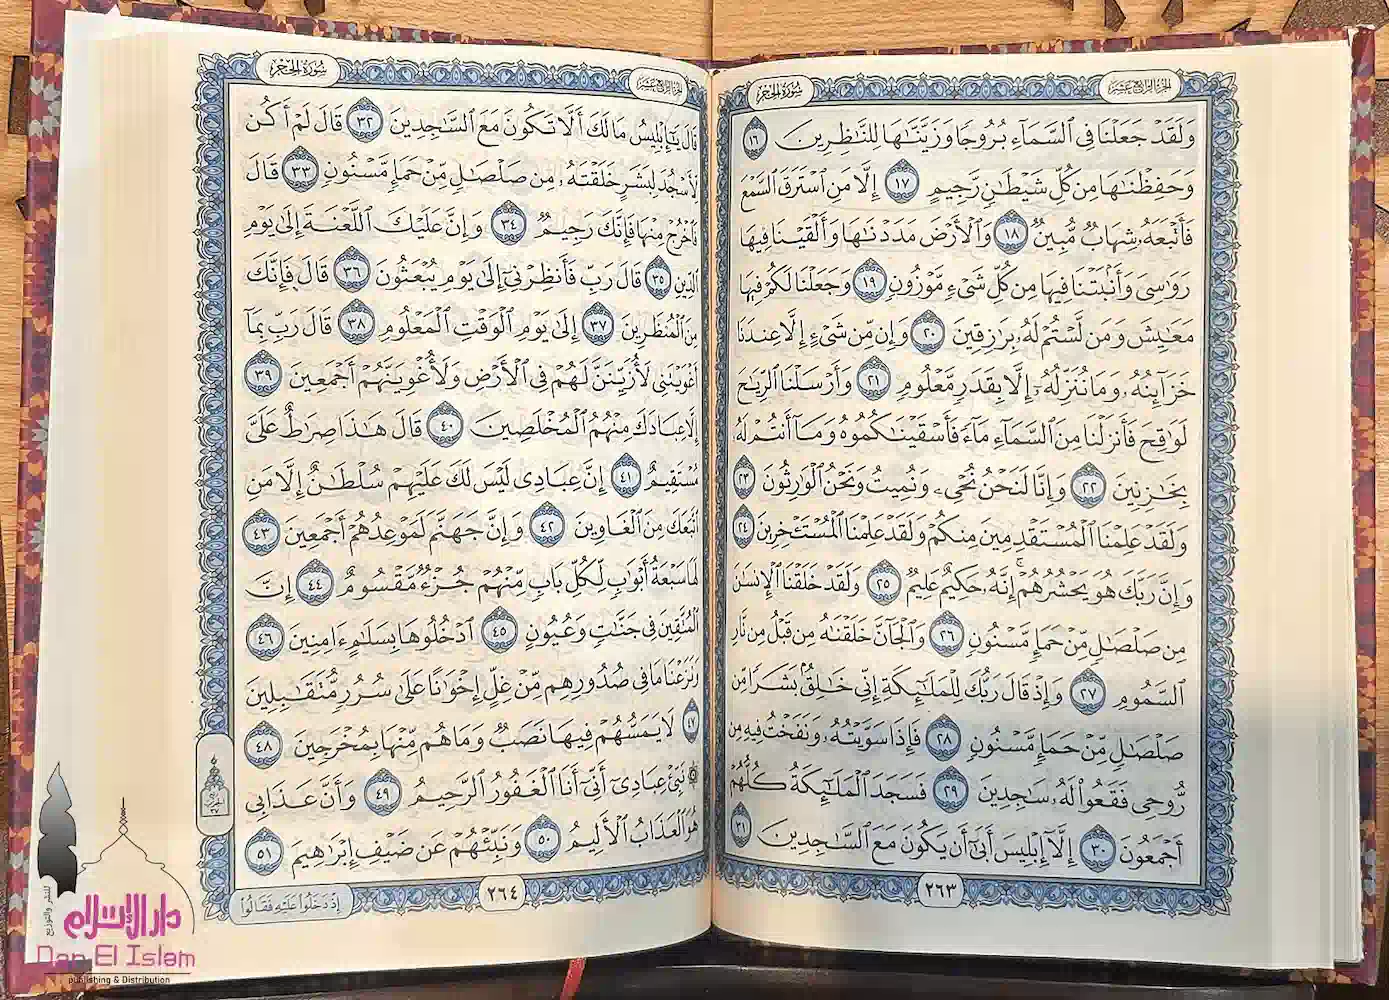 الجزء الرابع عشر
سورة الحجر
وَلَقَدْ جَعَلْنَا فِي ٱلسَّمَآءِ بُرُوجًا وَزَيَّنَّٰهَا لِلنَّٰظِرِينَ ١٦
وَحَفِظْنَٰهَا مِن كُلِّ شَيْطَٰنٍ رَّجِيمٍ ١٧ إِلَّا مَنِ ٱسْتَرَقَ ٱلسَّمْعَ
فَأَتْبَعَهُۥ شِهَابٌ مُّبِينٌ ١٨ وَٱلْأَرْضَ مَدَدْنَٰهَا وَأَلْقَيْنَا فِيهَا
رَوَٰسِيَ وَأَنۢبَتْنَا فِيهَا مِن كُلِّ شَيْءٍ مَّوْزُونٍ ١٩ وَجَعَلْنَا لَكُمْ فِيهَا
مَعَٰيِشَ وَمَن لَّسْتُمْ لَهُۥ بِرَٰزِقِينَ ٢٠ وَإِن مِّن شَيْءٍ إِلَّا عِندَنَا
خَزَآئِنُهُۥ وَمَا نُنَزِّلُهُۥٓ إِلَّا بِقَدَرٍ مَّعْلُومٍ ٢١ وَأَرْسَلْنَا ٱلرِّيَٰحَ
لَوَٰقِحَ فَأَنزَلْنَا مِنَ ٱلسَّمَآءِ مَآءً فَأَسْقَيْنَٰكُمُوهُ وَمَآ أَنتُمْ لَهُۥ
بِخَٰزِنِينَ ٢٢ وَإِنَّا لَنَحْنُ نُحْيِۦ وَنُمِيتُ وَنَحْنُ ٱلْوَٰرِثُونَ ٢٣
وَلَقَدْ عَلِمْنَا ٱلْمُسْتَقْدِمِينَ مِنكُمْ وَلَقَدْ عَلِمْنَا ٱلْمُسْتَـْٔخِرِينَ ٢٤
وَإِنَّ رَبَّكَ هُوَ يَحْشُرُهُمْ ۚ إِنَّهُۥ حَكِيمٌ عَلِيمٌ ٢٥ وَلَقَدْ خَلَقْنَا ٱلْإِنسَٰنَ
مِن صَلْصَٰلٍ مِّنْ حَمَإٍ مَّسْنُونٍ ٢٦ وَٱلْجَآنَّ خَلَقْنَٰهُ مِن قَبْلُ مِن نَّارِ
ٱلسَّمُومِ ٢٧ وَإِذْ قَالَ رَبُّكَ لِلْمَلَٰٓئِكَةِ إِنِّي خَٰلِقٌۢ بَشَرًا مِّن
صَلْصَٰلٍ مِّنْ حَمَإٍ مَّسْنُونٍ ٢٨ فَإِذَا سَوَّيْتُهُۥ وَنَفَخْتُ فِيهِ مِن
رُّوحِي فَقَعُوا۟ لَهُۥ سَٰجِدِينَ ٢٩ فَسَجَدَ ٱلْمَلَٰٓئِكَةُ كُلُّهُمْ
أَجْمَعُونَ ٣٠ إِلَّآ إِبْلِيسَ أَبَىٰٓ أَن يَكُونَ مَعَ ٱلسَّٰجِدِينَ ٣١
٢٦٣
الجزء الرابع عشر
سورة الحجر
قَالَ يَٰٓإِبْلِيسُ مَا لَكَ أَلَّا تَكُونَ مَعَ ٱلسَّٰجِدِينَ ٣٢ قَالَ لَمْ أَكُن
لِّأَسْجُدَ لِبَشَرٍ خَلَقْتَهُۥ مِن صَلْصَٰلٍ مِّنْ حَمَإٍ مَّسْنُونٍ ٣٣ قَالَ
فَٱخْرُجْ مِنْهَا فَإِنَّكَ رَجِيمٌ ٣٤ وَإِنَّ عَلَيْكَ ٱللَّعْنَةَ إِلَىٰ يَوْمِ
ٱلدِّينِ ٣٥ قَالَ رَبِّ فَأَنظِرْنِيٓ إِلَىٰ يَوْمِ يُبْعَثُونَ ٣٦ قَالَ فَإِنَّكَ
مِنَ ٱلْمُنظَرِينَ ٣٧ إِلَىٰ يَوْمِ ٱلْوَقْتِ ٱلْمَعْلُومِ ٣٨ قَالَ رَبِّ بِمَآ
أَغْوَيْتَنِي لَأُزَيِّنَنَّ لَهُمْ فِي ٱلْأَرْضِ وَلَأُغْوِيَنَّهُمْ أَجْمَعِينَ ٣٩
إِلَّا عِبَادَكَ مِنْهُمُ ٱلْمُخْلَصِينَ ٤٠ قَالَ هَٰذَا صِرَٰطٌ عَلَيَّ
مُسْتَقِيمٌ ٤١ إِنَّ عِبَادِي لَيْسَ لَكَ عَلَيْهِمْ سُلْطَٰنٌ إِلَّا مَنِ
ٱتَّبَعَكَ مِنَ ٱلْغَاوِينَ ٤٢ وَإِنَّ جَهَنَّمَ لَمَوْعِدُهُمْ أَجْمَعِينَ ٤٣
لَهَا سَبْعَةُ أَبْوَٰبٍ لِّكُلِّ بَابٍ مِّنْهُمْ جُزْءٌ مَّقْسُومٌ ٤٤ إِنَّ
ٱلْمُتَّقِينَ فِي جَنَّٰتٍ وَعُيُونٍ ٤٥ ٱدْخُلُوهَا بِسَلَٰمٍ ءَامِنِينَ ٤٦
وَنَزَعْنَا مَا فِي صُدُورِهِم مِّنْ غِلٍّ إِخْوَٰنًا عَلَىٰ سُرُرٍ مُّتَقَٰبِلِينَ
٤٧ لَا يَمَسُّهُمْ فِيهَا نَصَبٌ وَمَا هُم مِّنْهَا بِمُخْرَجِينَ ٤٨
۞ نَبِّئْ عِبَادِيٓ أَنِّيٓ أَنَا ٱلْغَفُورُ ٱلرَّحِيمُ ٤٩ وَأَنَّ عَذَابِي
هُوَ ٱلْعَذَابُ ٱلْأَلِيمُ ٥٠ وَنَبِّئْهُمْ عَن ضَيْفِ إِبْرَٰهِيمَ ٥١
إِذْ دَخَلُوا۟ عَلَيْهِ فَقَالُوا۟
٢٦٤
دار الإسلام
للنشر والتوزيع
Dar El Islam
publishing & Distribution